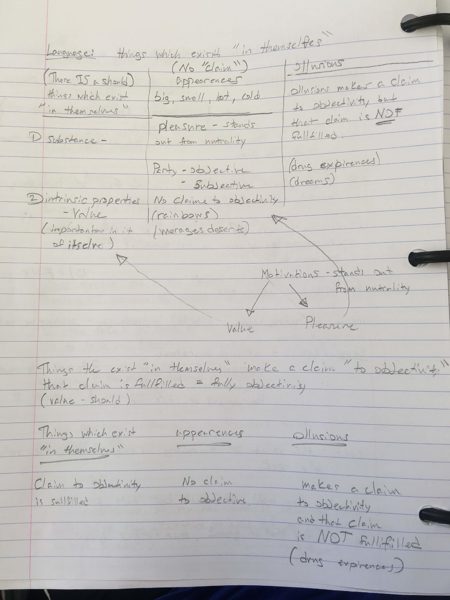 Language: things which exisit "in themselfes"
(There IS a should)
things which exist
"in themselves"
① Substance -
② intrinsic properties
- Value
(importantor in it
of itselve)
(No "claim")
Appearences
big, small, hot, cold
pleasure - stands
out from nutrality
Party - objective
- Subjective
No Claime to objectivity
(rainbows)
(merages deserts)
illusions
illusions makes a claim
to objectivity but
that claim is NOT
fullfilled.
(drug expirences)
(dreams)
Motivations - stands out
from nutrality
Value
Pleasure
Things the exist "in themselves" make a claim "to objectivity"
that claim is fullfilled = fully objectivity
(value - should)
Things which exist
"in themselves"
Claim to objectivity
is fullfilled
appearences
No claim
to objective
illusions
makes a claim
to objectivity
and that claim
is NOT fullfilled
(drug expirences)